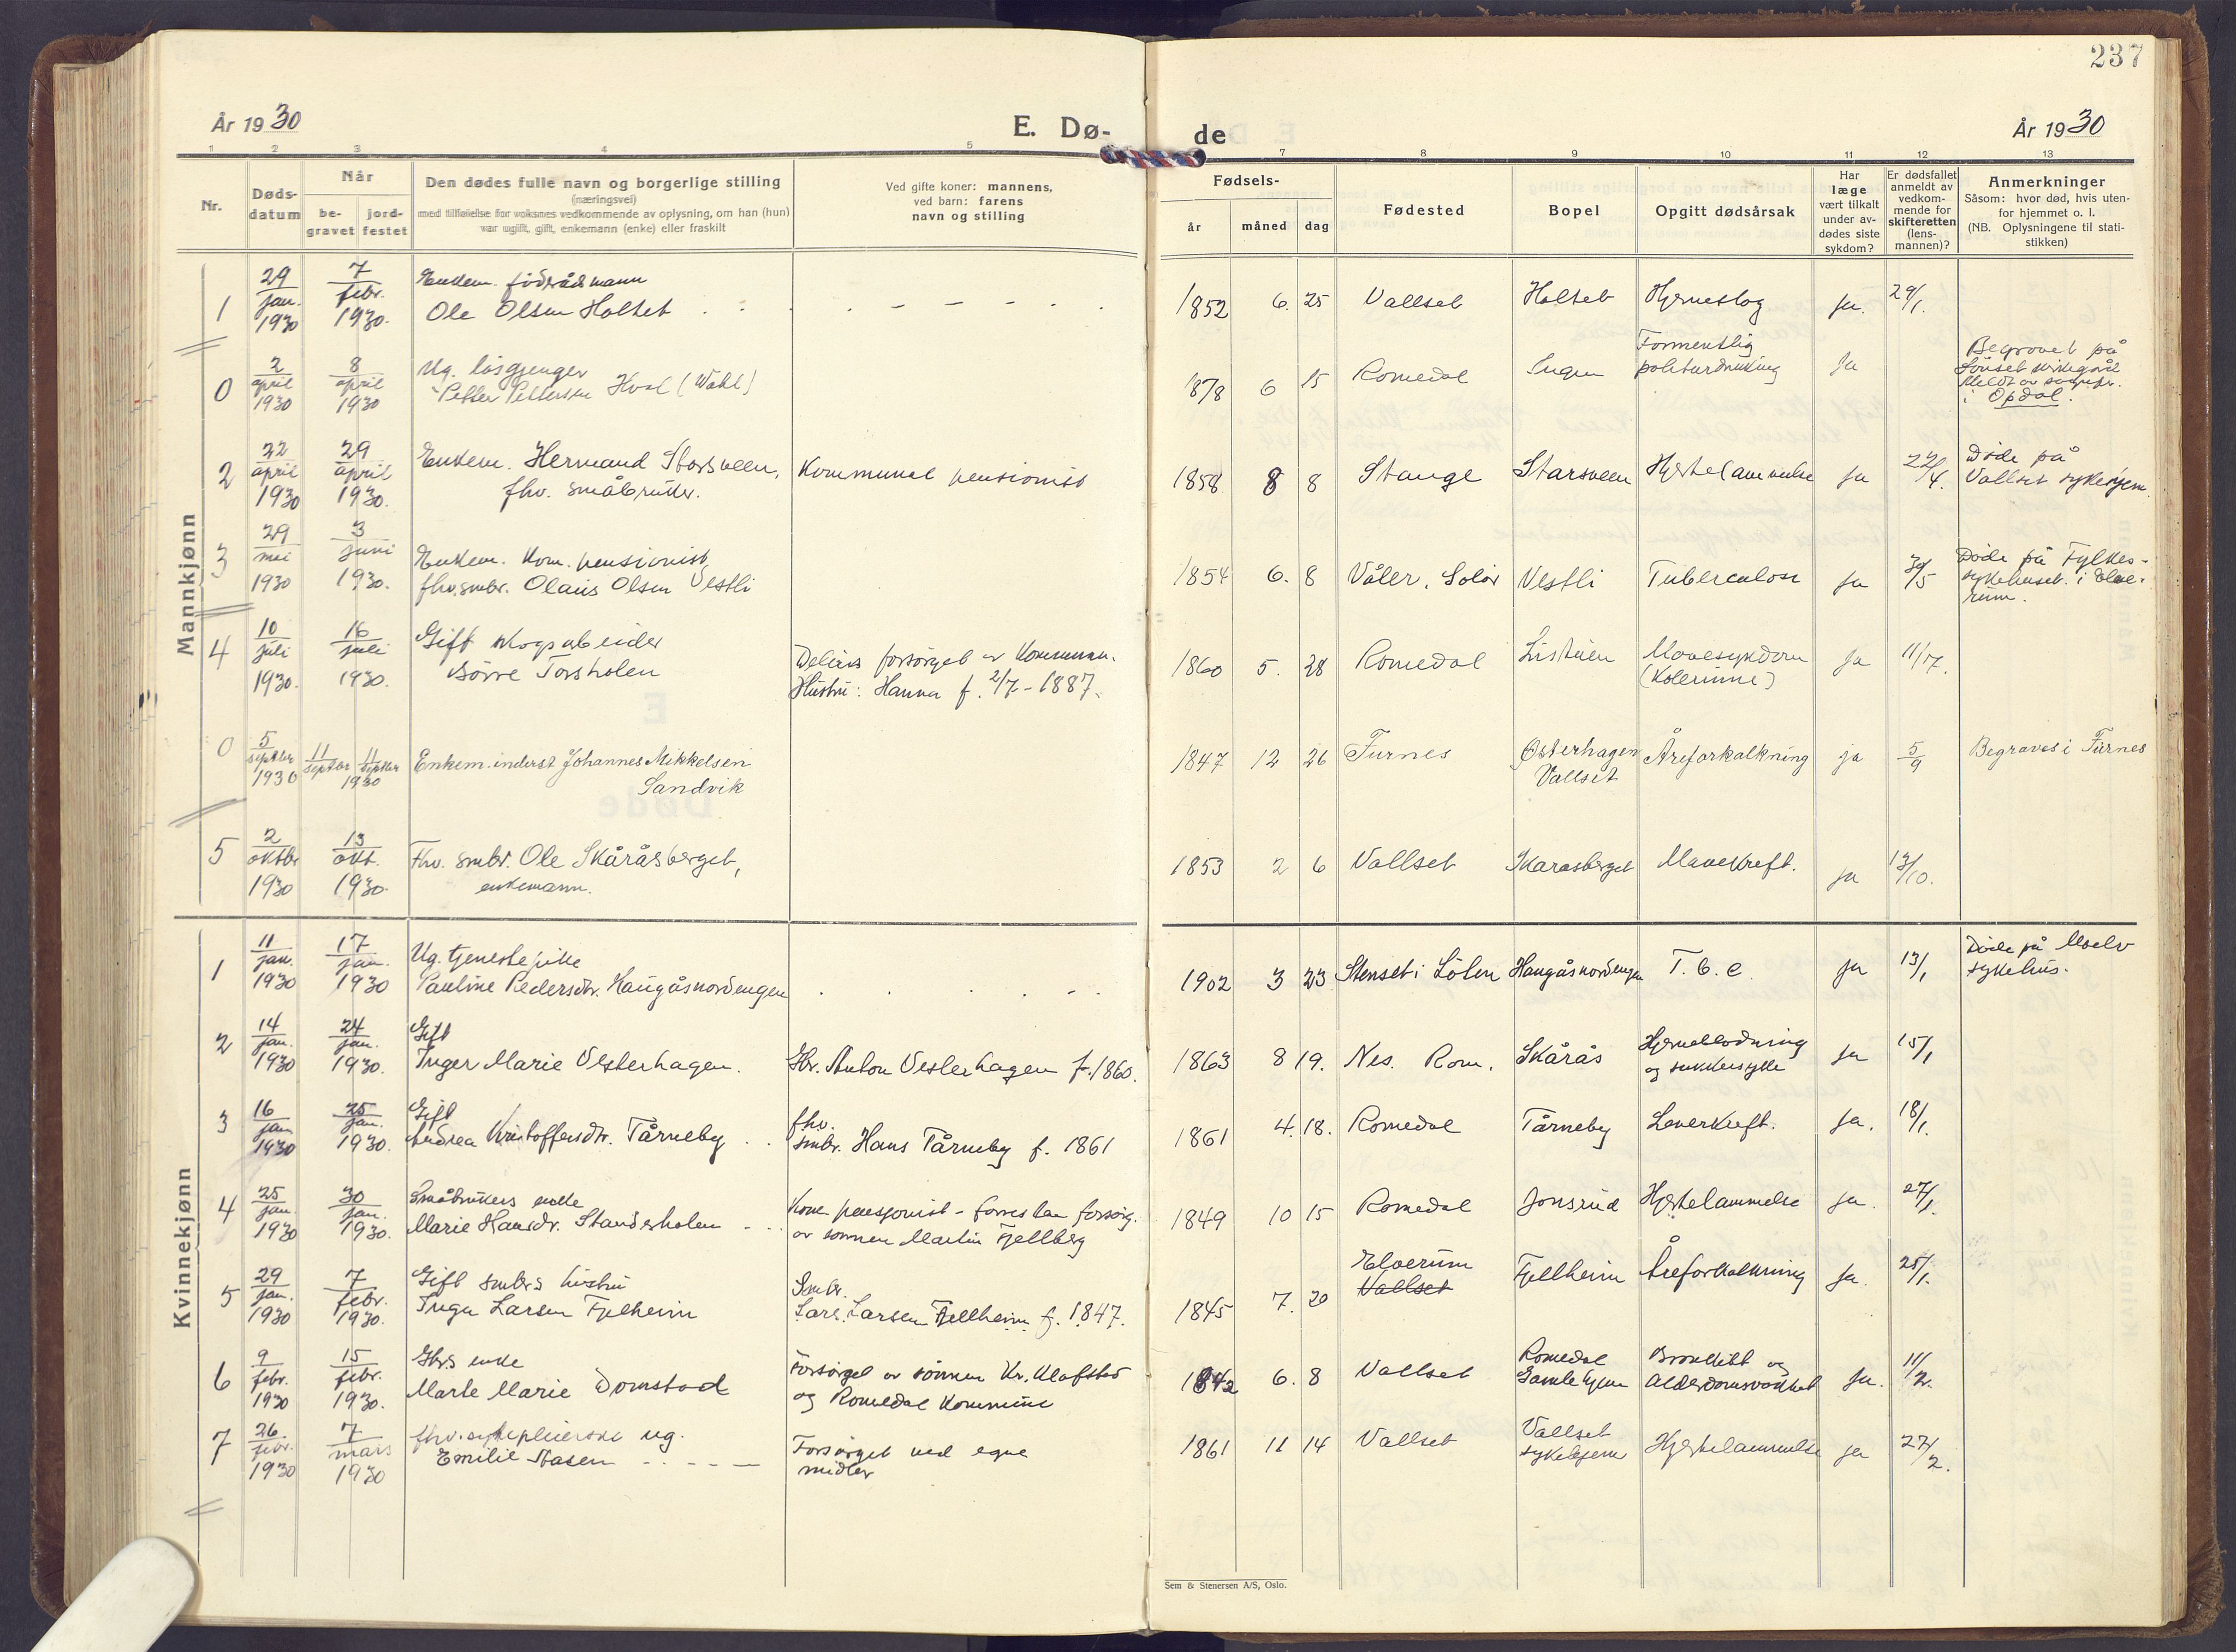 237
År 1930
E. Dø-
de
År 1930
1 2 3 4 5 7 8 9 10 11 12 13
Nr.
Døds-
datum
Når
be-
gravet
jord-
festet
Den dødes fulle navn og borgerlige stilling
(næringsvei)
med tilføielse for voksnes vedkommende av oplysning, om han (hun)
var ugift, gift, enkemann (enke) eller fraskilt
Ved gifte koner: mannens,
ved barn: farens
navn og stilling
Fødsels-
år
måned
dag
Fødested
Bopel
Opgitt dødsårsak
Har
læge
vært tilkalt
under av-
dødes siste
sykdom?
Er dødsfallet
anmeldt av
vedkom-
mende for
skifteretten
(lens-
mannen)?
Anmerkninger
Såsom: hvor død, hvis uten-
for hjemmet o. l.
(NB. Oplysningene til stati-
stikken)
Mannkjønn
1
29 jan. 1930
7 febr. 1930.
Enkem. föderådsmann
Ole Olsen Holtet
1852 6. 25 Vallset Holset Hjerneslag ja. 29/1.
0
2 april 1930
8 april 1930
Ug. løsgjenger
Petter Pettersen Hval (Wahl)
1878 6 15 Romedal Ingen
Formentlig
politurdrikking
Ja
Begravet på
Lönset kirkegård
Meldt av sognepr.
i Opdal.
2
22 april 1930
29 april 1930.
Enkem. Hermand Storsveen,
fhv. småbruker.
Kommunel pensionist
1858 8 8 Stange Starsveen Hjertelammelse ja 22/4.
Døde på
Vallset sykehjem.
3
29 mai 1930
3 juni 1930.
Enkem. Kom. pensionist,
fhv. smbr. Olaus Olsen Vestli
1854 6. 8 Våler, Solør Vestli Tuberculose ja 30/5
Døde på Fylkes-
sykehuset i Elve-
rum.
4
10 juli 1930.
16 juli 1930.
Gift skogsarbeider
Børre Torsholen
Delvis forsörget av Kommunen.
Hustru: Hanna f. 2/7-1887.
1860 5. 28 Romedal
Mavesykdom
(Kolerinne)
ja 11/7.
0
5 septbr 1930
11 septbr
11 septbr 1930
Enkem. inderst Johannes Mikkelsen
Sandvik
1847 12 26 Furnes
Østerhagen
Vallset
Åreforkalkning ja 5/9 Begraves i Furnes
5
2 oktbr 1930
13 okt. 1930.
Fhv. smbr. Ole Skåråsberget,
enkemann.
1853 2 6 Vallset Skaråsberget Mavekreft. ja 13/10.
Kvinnekjønn
1
11 jan. 1930
17 jan. 1930
Ug. tjenestepike
Pauline Pedersdtr. Haugåsnordengen
1902 3 23 Stenset i Löten Haugåsnordengen T. b. c ja 13/1
Døde på Moelv
sykehus.
2
14 jan. 1930
24 jan. 1930.
Gift
Inger Marie Vesterhagen.
Gbr. Anton Vesterhagen f. 1860.
1863 8 19. Nes. Rom. Skårås
Hjerneblødning
og sukkersyke
ja 15/1
3
16 jan 1930
25 jan. 1930.
Gift
Andrea Kristoffersdtr. Tårneby
fhv.
smbr. Hans Tårneby f. 1861
1861 4. 18. Romedal Tårneby Leverkreft. ja. 18/1.
4
25 jan. 1930
30 jan. 1930.
Småbrukers enke
Marie Hansdr. Standerholen
Kom pensjonist - forresten forsörg.
av sönnen Martin Fjellberg
1849 10 15 Romedal Jonsrud Hjertelammelse ja. 27/1.
5
29 jan. 1930
7 febr. 1930.
Gift smbrs hustru
Inga Larsen Fjelheim
Smbr.
Lars Larsen Fjellheim f. 1847.
1845 7. 20
Elverum
Vallset
Fjellheim Åreforkalkning ja. 25/1.
6
9 febr. 1930
15 febr. 1930.
Gbrs enke
Marte Marie Domstad
Forsörget av sönnen Kr. Klafstad
og Romedal Kommune
1842 6. 8 Vallset
Romedal
Gamlehjem
Bronkitt og
Alderdomssvakhet
ja. 11/2.
7
26 febr. 1930
7 mars 1930
fhv. sykepleierske ug.
Emilie Stasen
Forsörget ved egne
midler
1861 11 14 Vallset
Vallset
sykehjem
Hjertelammelse ja 27/2.
Sem & Stenersen A/S, Oslo.